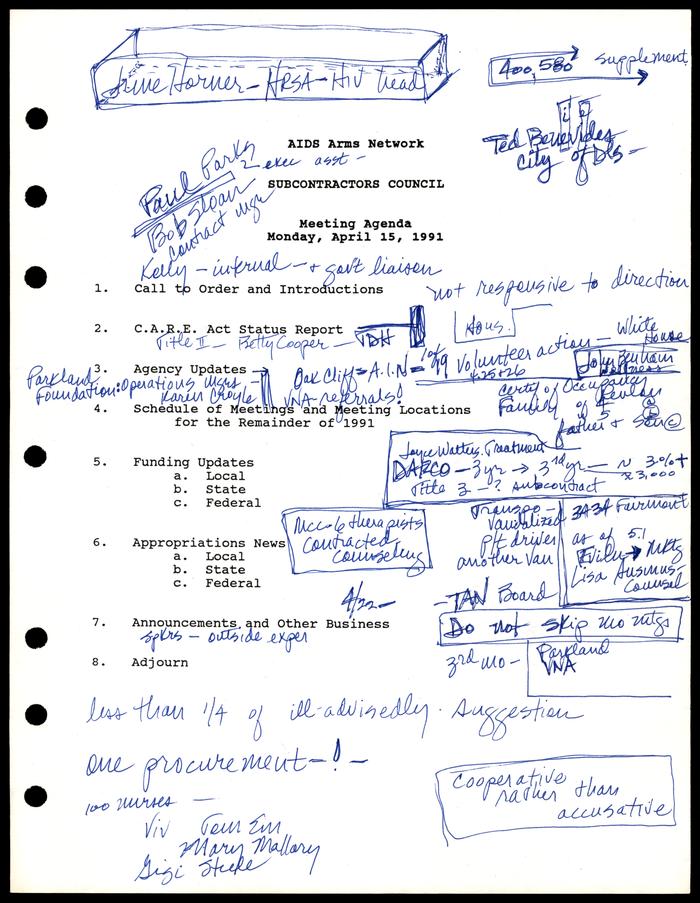 June Horner - HRSA - HIV head
400,580 supplement
AIDS Arms Network
Ted Benevides
City of Dls -
Paul Parks
2 exec asst -
SUBCONTRACTORS COUNCIL
Bob Sloan
contract mgr
Meeting Agenda
Monday, April 15, 1991
Kelly - internal - + govt liaison
not responsive to direction
1. Call to Order and Introductions
Hous.
2. C.A.R.E. Act Status Report
Title II - Betty Cooper - TDH
Volunteer action - White House
3. Agency Updates
Oak Cliff = A.I.N =
Parkland
Foundation: Operations mgrs -
VNA - referrals!
Certy of Occupancy
Family of 4
4. Schedule of Meetings and Meeting Locations
for the Remainder of 1991
Father & Son
Joyce Watters. Treatment
DARCO - 3 yr → 3rd yr - ~ 3%+
Title 3 - ? subcontract
5. Funding Updates
a. Local
b. State
c. Federal
Transpo -
Vandalized
p/t driver
another van
3434 Fairmont
as of 5.1
Mktg
Lisa
Counsel
MCC - 6 therapists
Contracted
counseling
6. Appropriations News
a. Local
b. State
c. Federal
4/22 -
- TAN Board
7. Announcements and Other Business
spkrs - outside exper
Do not skip mo mtgs
3rd mo - Parkland
VNA
8. Adjourn
less than 1/4 of ill-advisedly. suggestion
one procurement - ! -
100 nurses -
Cooperative
rather than
accusative
Viv
Mary Mallory
Gigi